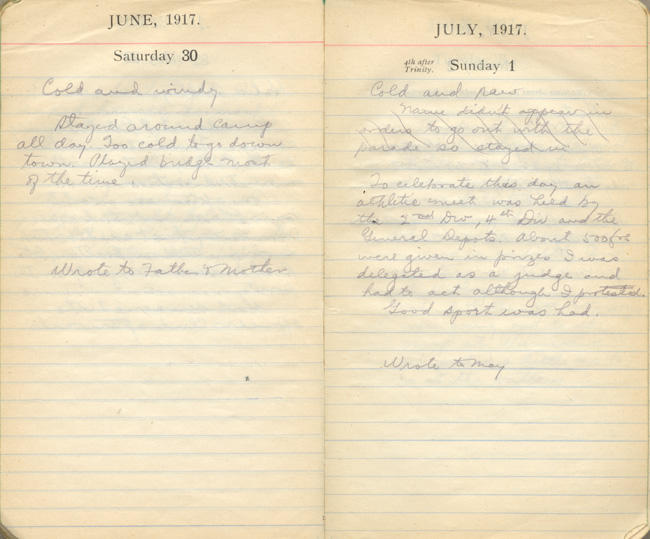 JUNE, 1917.
Saturday 30
Cold and windy
Stayed around camp
all day. Too cold to go down
town. Played bridge most
of the time.
Wrote to Father & Mother
JULY, 1917.
4th after
Trinity.
Sunday 1
Cold and raw
Name didn't appear in
orders to go out with the
parade so stayed in
To celebrate this day an
athletic meet was held by
the 2nd Div, 4th Div and the
General Depots. About 500
were given in prizes I was
delegated as a judge and
had to act although I protested.
Good sport was had.
Wrote to May